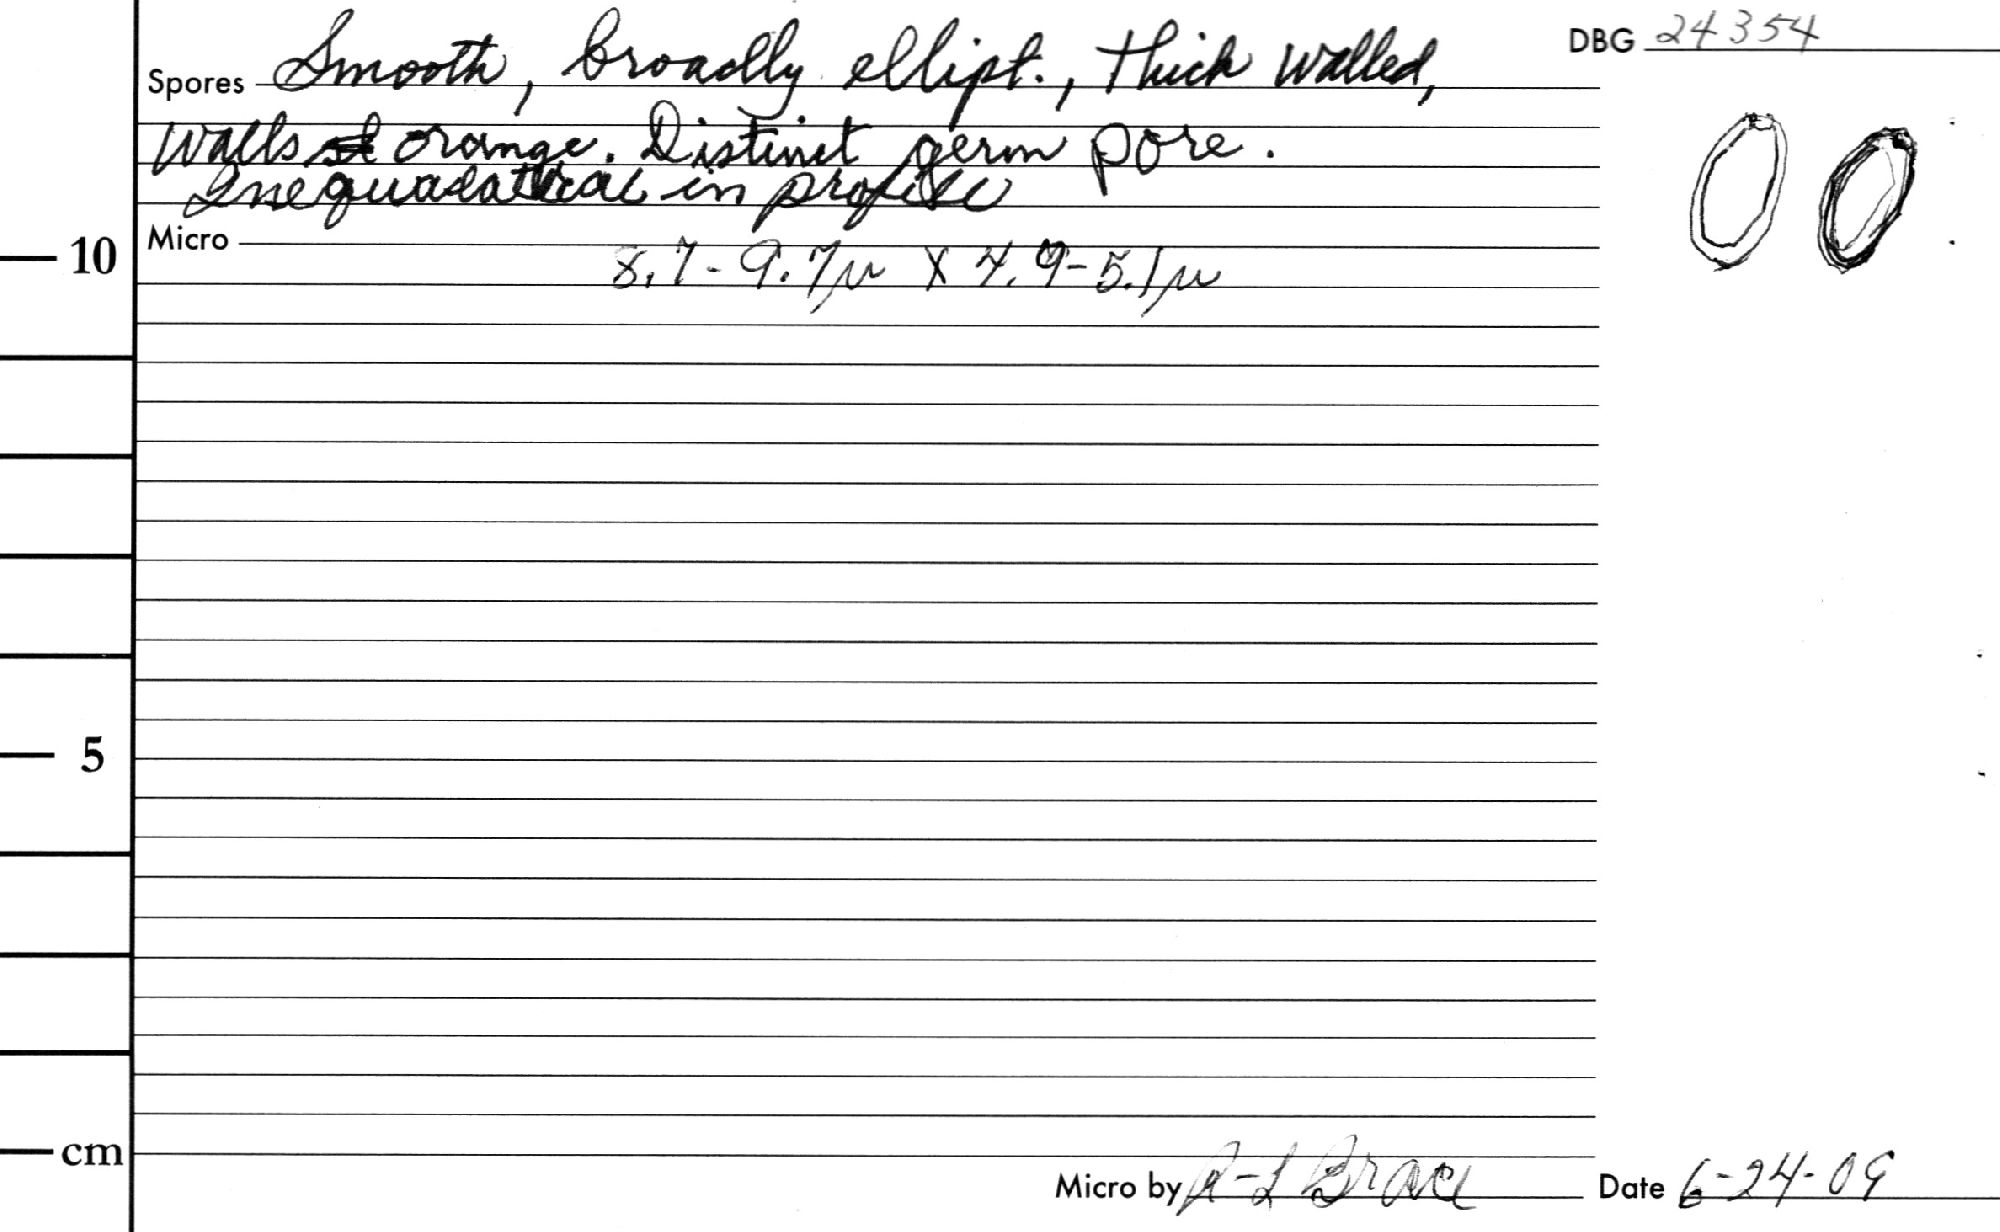 DBG 24354
Spores Smooth, broadly ellipt., thick walled,
walls orange. Distinct germ pore.
Inequalateral in profile
Micro
8.7-9.7μ X 4.9-5.1μ
10
5
cm
Micro by R-L Brace Date 6-24-09